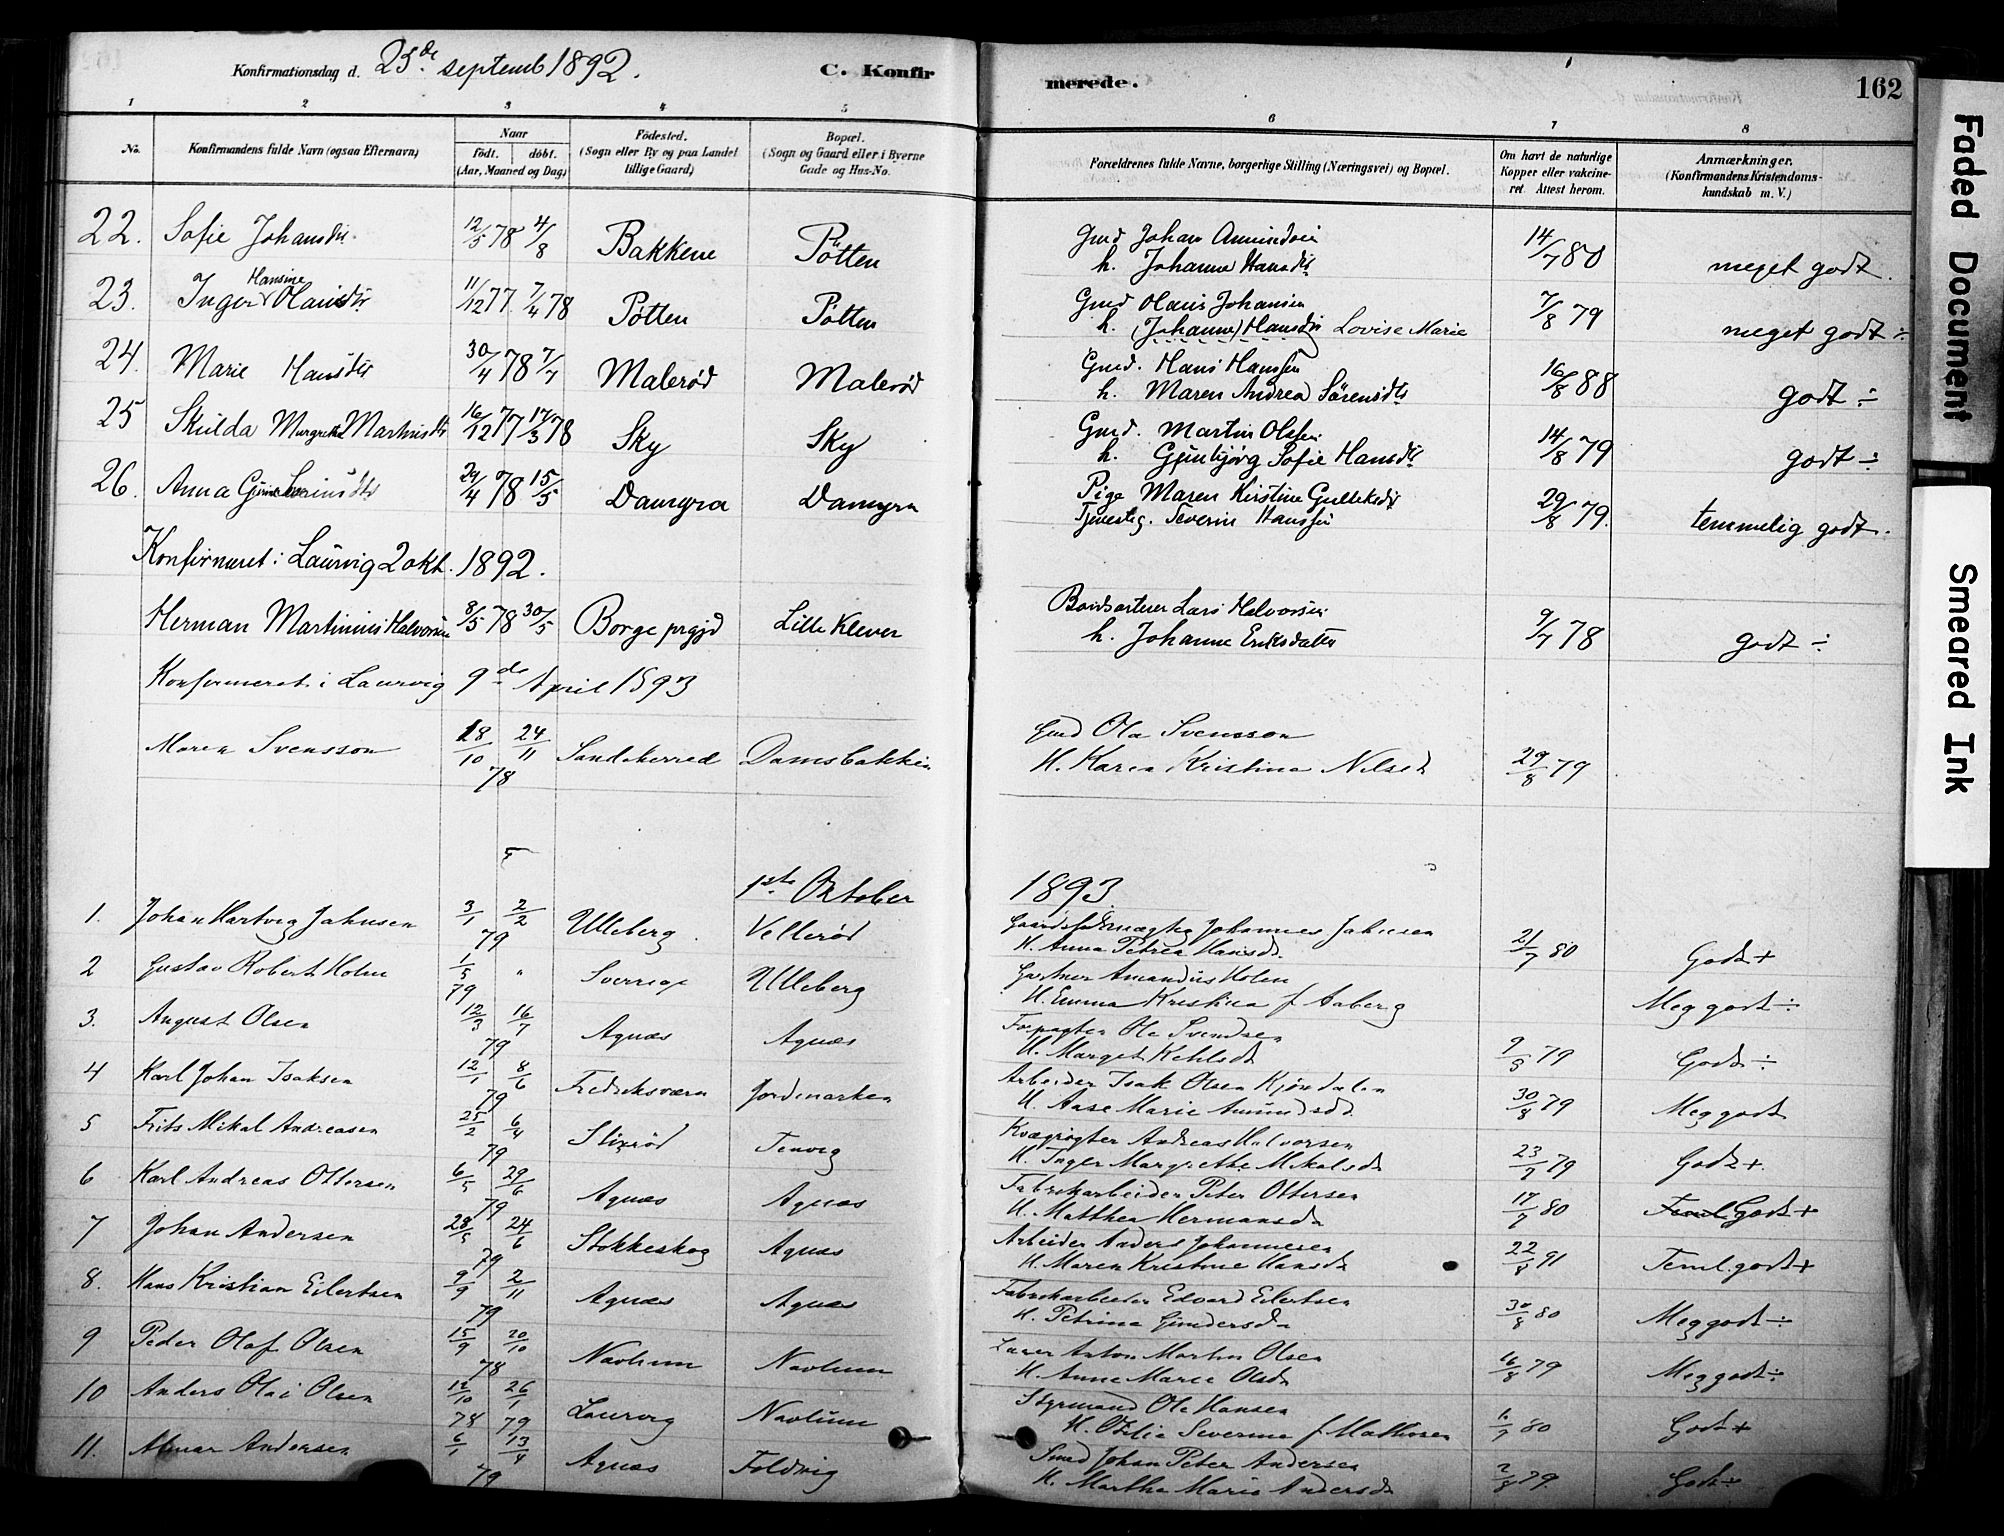 Konfirmationsdag d. 25de septemb 1892. C. Konfirmerede. 162
1 2 3 4 5 6 7 8
No. Konfirmandens fulde Navn (ogsaa Efternavn) Naar født. døbt. (Aar, Maaned og Dag) Födested. (Sogn eller By og paa Landet tillige Gaard) Bopæl. (Sogn og Gaard eller i Byerne Gade og Hus-No. Forældrenes fulde Navne, borgerlige Stilling (Næringsvei) og Bopæl. Om havt de naturlige Kopper eller vakcineret. Attest herom. Anmærkninger. (Konfirmandens Kristendomskundskab m. V.)
22. Sofie Johansdtr. 12/5 78 4/8 Bakkene Pøtten Gmd Johan Amundsen h. Johanne Hansdtr 14/7 80 meget godt.
23. Inger Hansine Hansdtr 11/12 77 7/4 78 Pøtten Pøtten Gmd Hans Johansen h. (Johanne) Hansdtr Lovise Marie 7/8 79 meget godt ÷
24. Marie Hansdtr 30/4 78 7/7 Malerød Malerød Gmd. Hans Hansen h. Maren Andrea Sørensdtr 16/8 88 godt ÷
25 Skulda Margrethe Martinsdtr 16/12 77 17/3 78 Sky Sky Gmd. Martin Olsen h. Gunbjørg Sofie Hansdtr 14/8 79 godt ÷
26. Anna Severinsdtr 29/4 78 15/5 Damyra Damyra Pige Maren Kirstine Gulleksdtr Tjenestg. Severin Hansen 29/8 79. temmelig godt.
Konfirmeret i Laurvig 2 okt. 1892.
Herman Martinius Halvorsen 8/5 78 30/5 Borge prgjd Lille Klever Lars Halvorsen h. Johanne Eriksdatter 9/7 78 godt ÷
Konfirmeret i Laurvig 9de April 1893
Maren Svensson 18/10 24/11 78 Sandeherred Damsbakken Gmd Ola Svensson H. Karen Kristina Nilsd 29/8 79
1ste Oktober 1893.
1. Johan Hartvig Jahnsen 3/1 2/2 79 Ulleberg. Vellerød Gaardsfuldmægtig Johannes Jahnsen H. Anna Petrea Hansd. 21/7 80 Godt +
2 Gustav Robert Holm 1/5 " 79 Sverrige Ulleberg Gartner Amandus Holm H. Emma Kristina f. Aaberg Meg godt ÷
3. August Olsen 12/3 16/7 79 Agnæs Agnæs Forpagter Ole Svendsen H. Marget Kehlsd 9/9 79 Godt ÷
4 Karl Johan Isaksen 12/1 8/6 79 Fredriksværn Jordmarken Arbeider Isak Olsen Kjøndalen H. Aase Marie Amundsd. 30/8 79 Meg godt
5 Frits Mikal Andreasen 25/2 6/4 79 Slirød Tenvig Kvægrøgter Andreas Halvorsen H. Inger Margrethe Mikalsd 23/7 79 Godt +
6 Karl Andreas Ottersen 6/5 29/6 79 Agnæs Agnæs Fabrikarbeider Peter Ottersen H. Mathea Hermansd. 17/7 80 Teml. Godt +
7 Johan Andersen 23/5 24/6 79 Stokkeskog Agnæs Arbeider Anders Johannesen H. Maren Kristine Hansd 22/8 91 Teml. godt +
8. Hans Kristian Eilertsen 9/9 2/11 79 Agnæs Agnæs Fabrikarbeider Edvard Eilertsen H. Petrine Gundersd. 30/8 80 Meg godt ÷
9 Peder Olaf Olsen 15/9 20/10 78 Navlum Navlum Anton Martin Olsen H. Anne Marie Olsd. 16/8 79 Meg godt ÷
10 Anders Olai Olsen 12/10 78 26/1 79 Laurvig Navlum Styrmand Ole Hansen H. Otilie Severine f. Mathisen 80 Godt +
11. Almar Andersen 6/1 13/4 79 Agnæs Foldvig Smed Johan Peter Andersen H. Marthe Marie Andersd. 2/8 79. Godt ÷
Faded Document
Smeared Ink